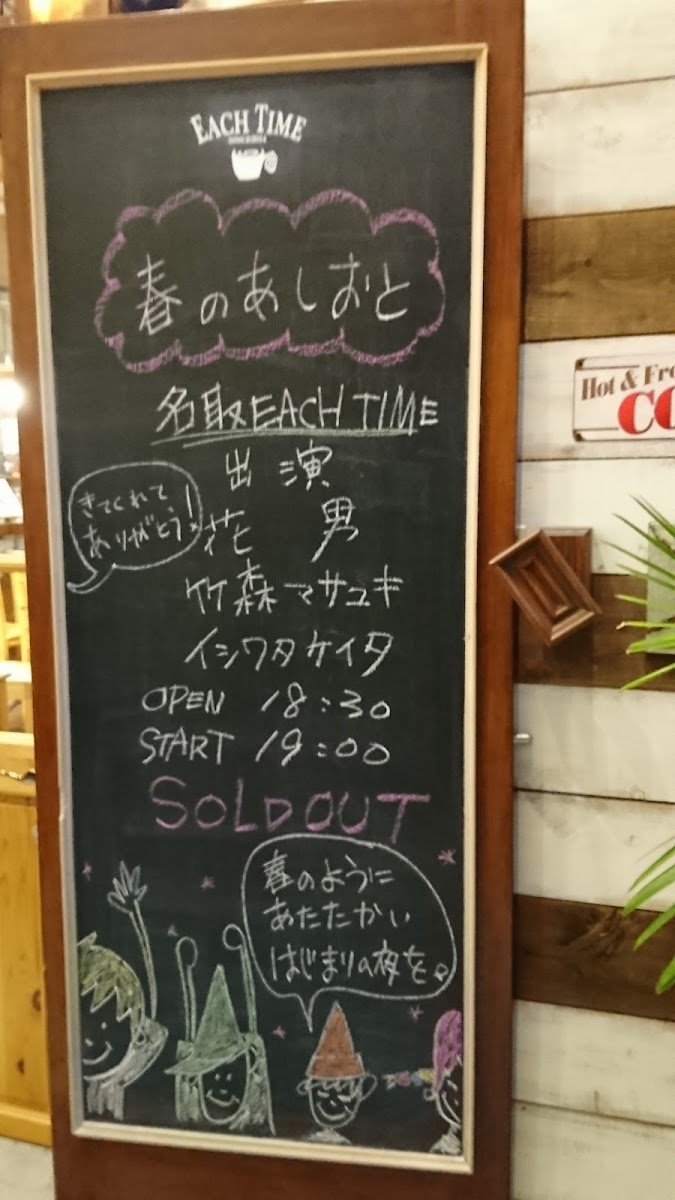 EACH TIME
春のあしおと
名取EACH TIME
出演
きてくれて
ありがとう!
花 男
竹森マサユキ
イシワタケイタ
OPEN 18:30
START 19:00
SOLD OUT
春のように
あたたかい
はじまりの夜を
Hot & Fre
CO